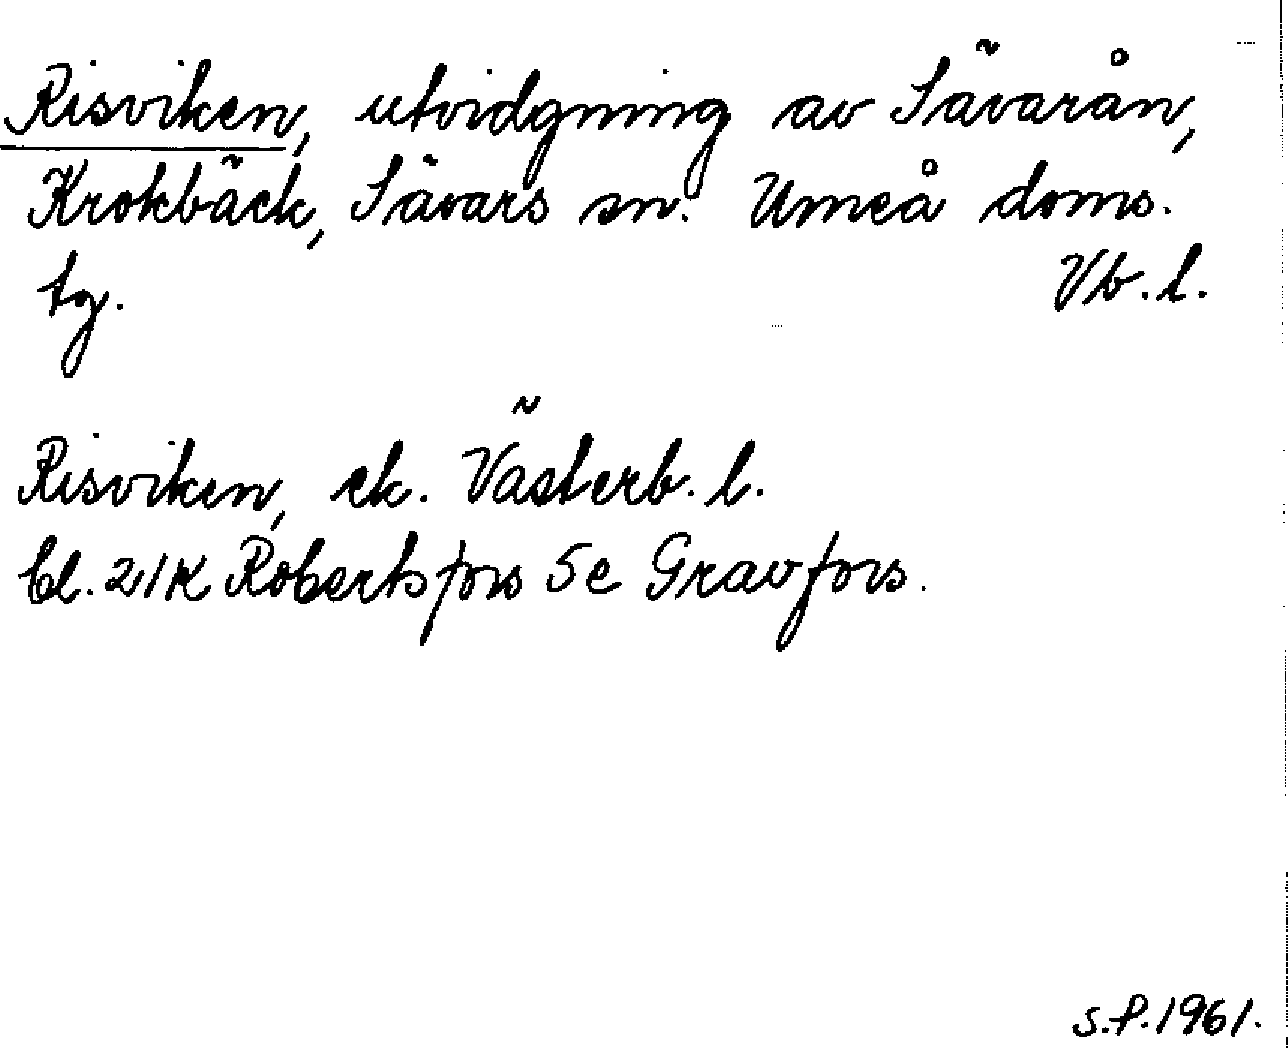 Risviken, utvidgning av Sävarån,
Krokbäck, Sävars sn. Umeå doms.
tg. Vb. l.
Risviken, ek. Västerb. l.
bl. 21K Robertsfors 5e Gravfors.
S.P. 1961.